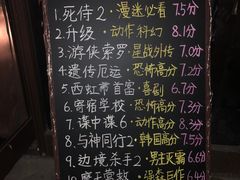 1.死侍2·漫迷必看 7.5分
2.升级·动作科幻 8.1分
3.游侠索罗·星战外传 7.0分
4.遗传厄运·恐怖高分 7.2分
5.西虹市首富·喜剧 6.7分
6.寄宿学校·恐怖高分 7.3分
7.谍中谍6·动作高分 8.2分
8.与神同行2·韩国高分 7.5分
9.边境杀手2·男主灭霸 6.6分
10.摩天营救·强森巨作 6.4分